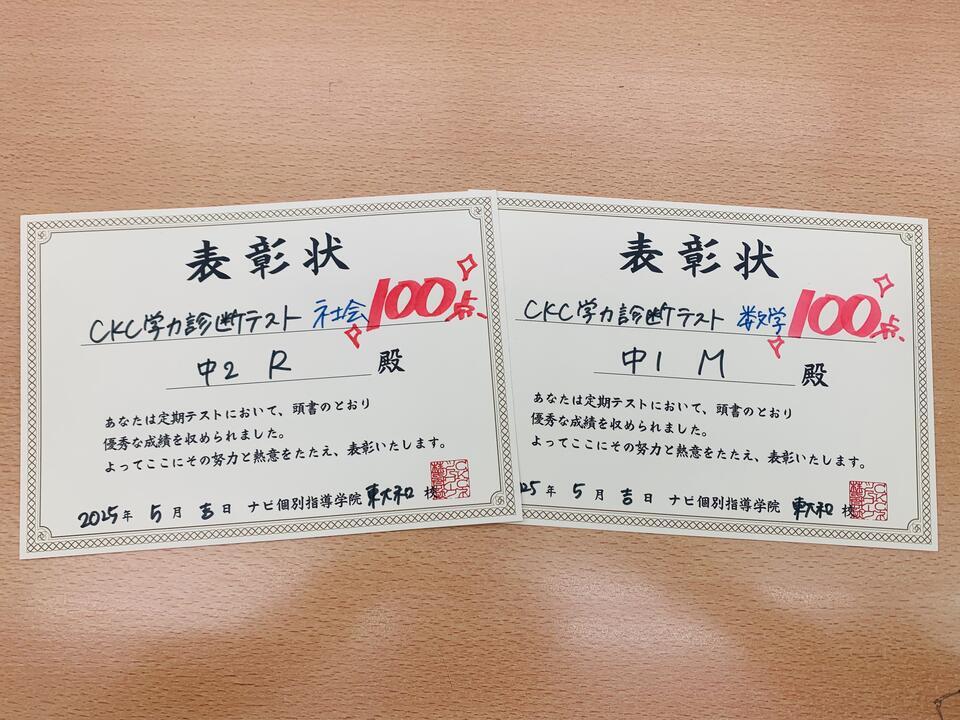 表彰状
CKC学力診断テスト 社会 100点
中2 R 殿
あなたは定期テストにおいて、頭書のとおり
優秀な成績を収められました。
よってここにその努力と熱意をたたえ、表彰いたします。
2025年 5月 吉日 ナビ個別指導学院 東大和 校
表彰状
CKC学力診断テスト 数学 100点
中1 M 殿
あなたは定期テストにおいて、頭書のとおり
優秀な成績を収められました。
よってここにその努力と熱意をたたえ、表彰いたします。
25年 5月 吉日 ナビ個別指導学院 東大和 校